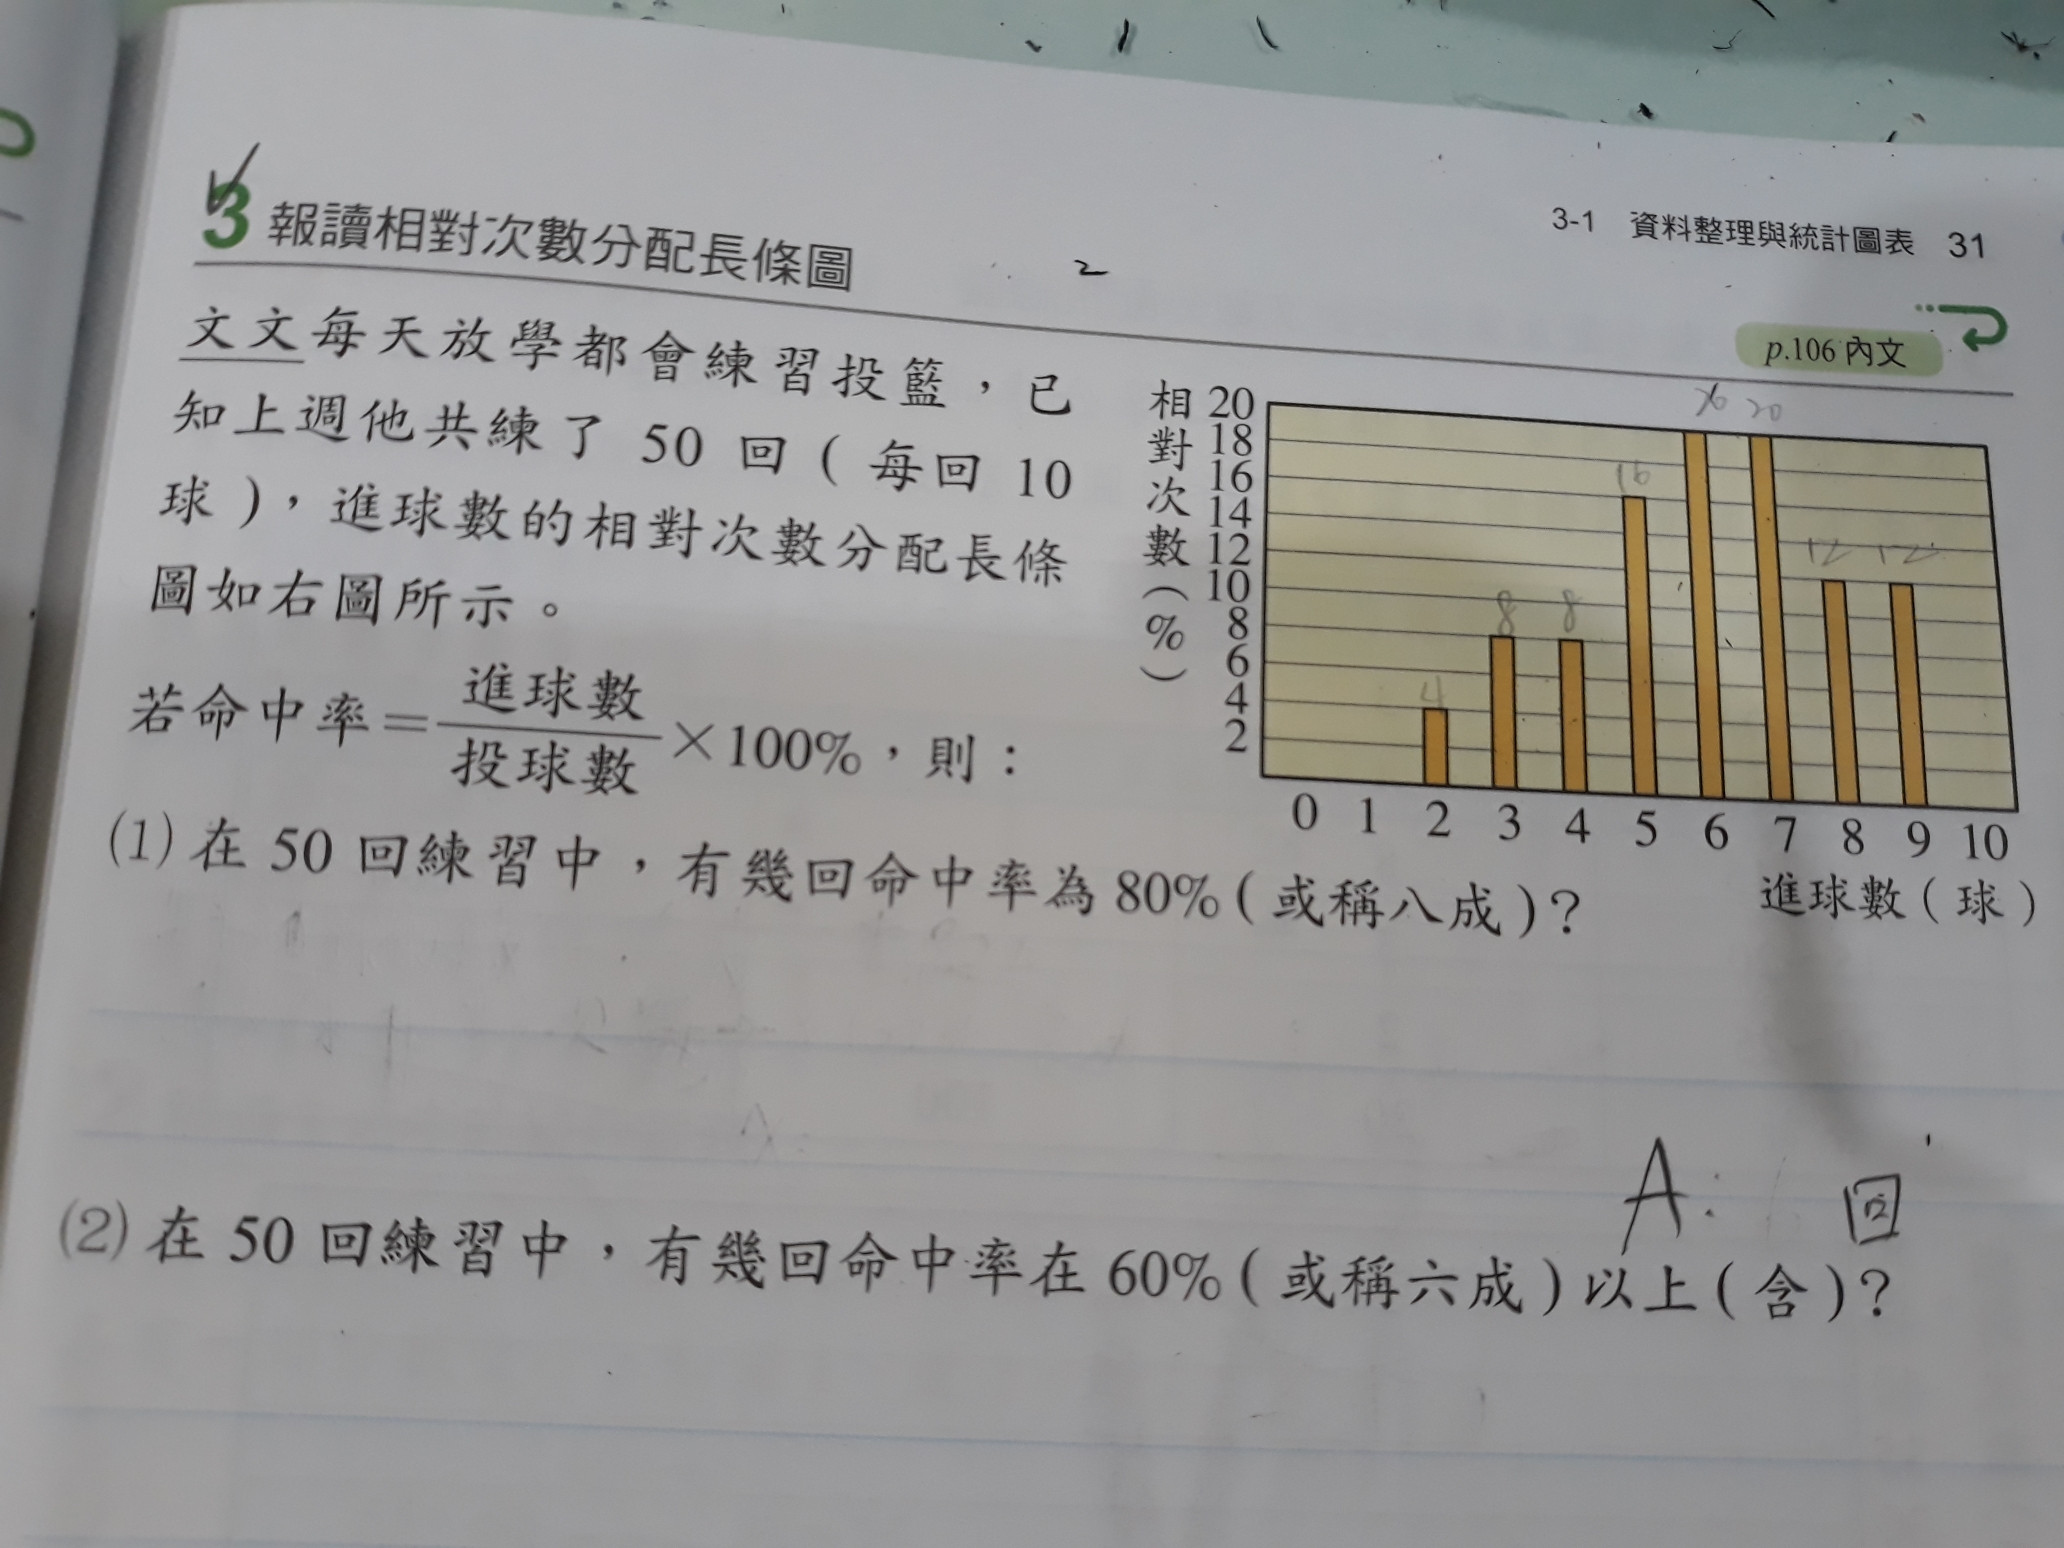 3-1 資料整理與統計圖表 31
3 報讀相對次數分配長條圖
2
p.106 內文
文文每天放學都會練習投籃，已
知上週他共練了 50 回（每回 10
球），進球數的相對次數分配長條
圖如右圖所示。
若命中率=進球數/投球數×100%，則：
相對次數(%)
20
18
16
14
12
10
8
6
4
2
4 8 8 16 20 20 12 12
0 1 2 3 4 5 6 7 8 9 10
進球數（球）
(1) 在 50 回練習中，有幾回命中率為 80%（或稱八成）？
A: 回
(2) 在 50 回練習中，有幾回命中率在 60%（或稱六成）以上（含）？